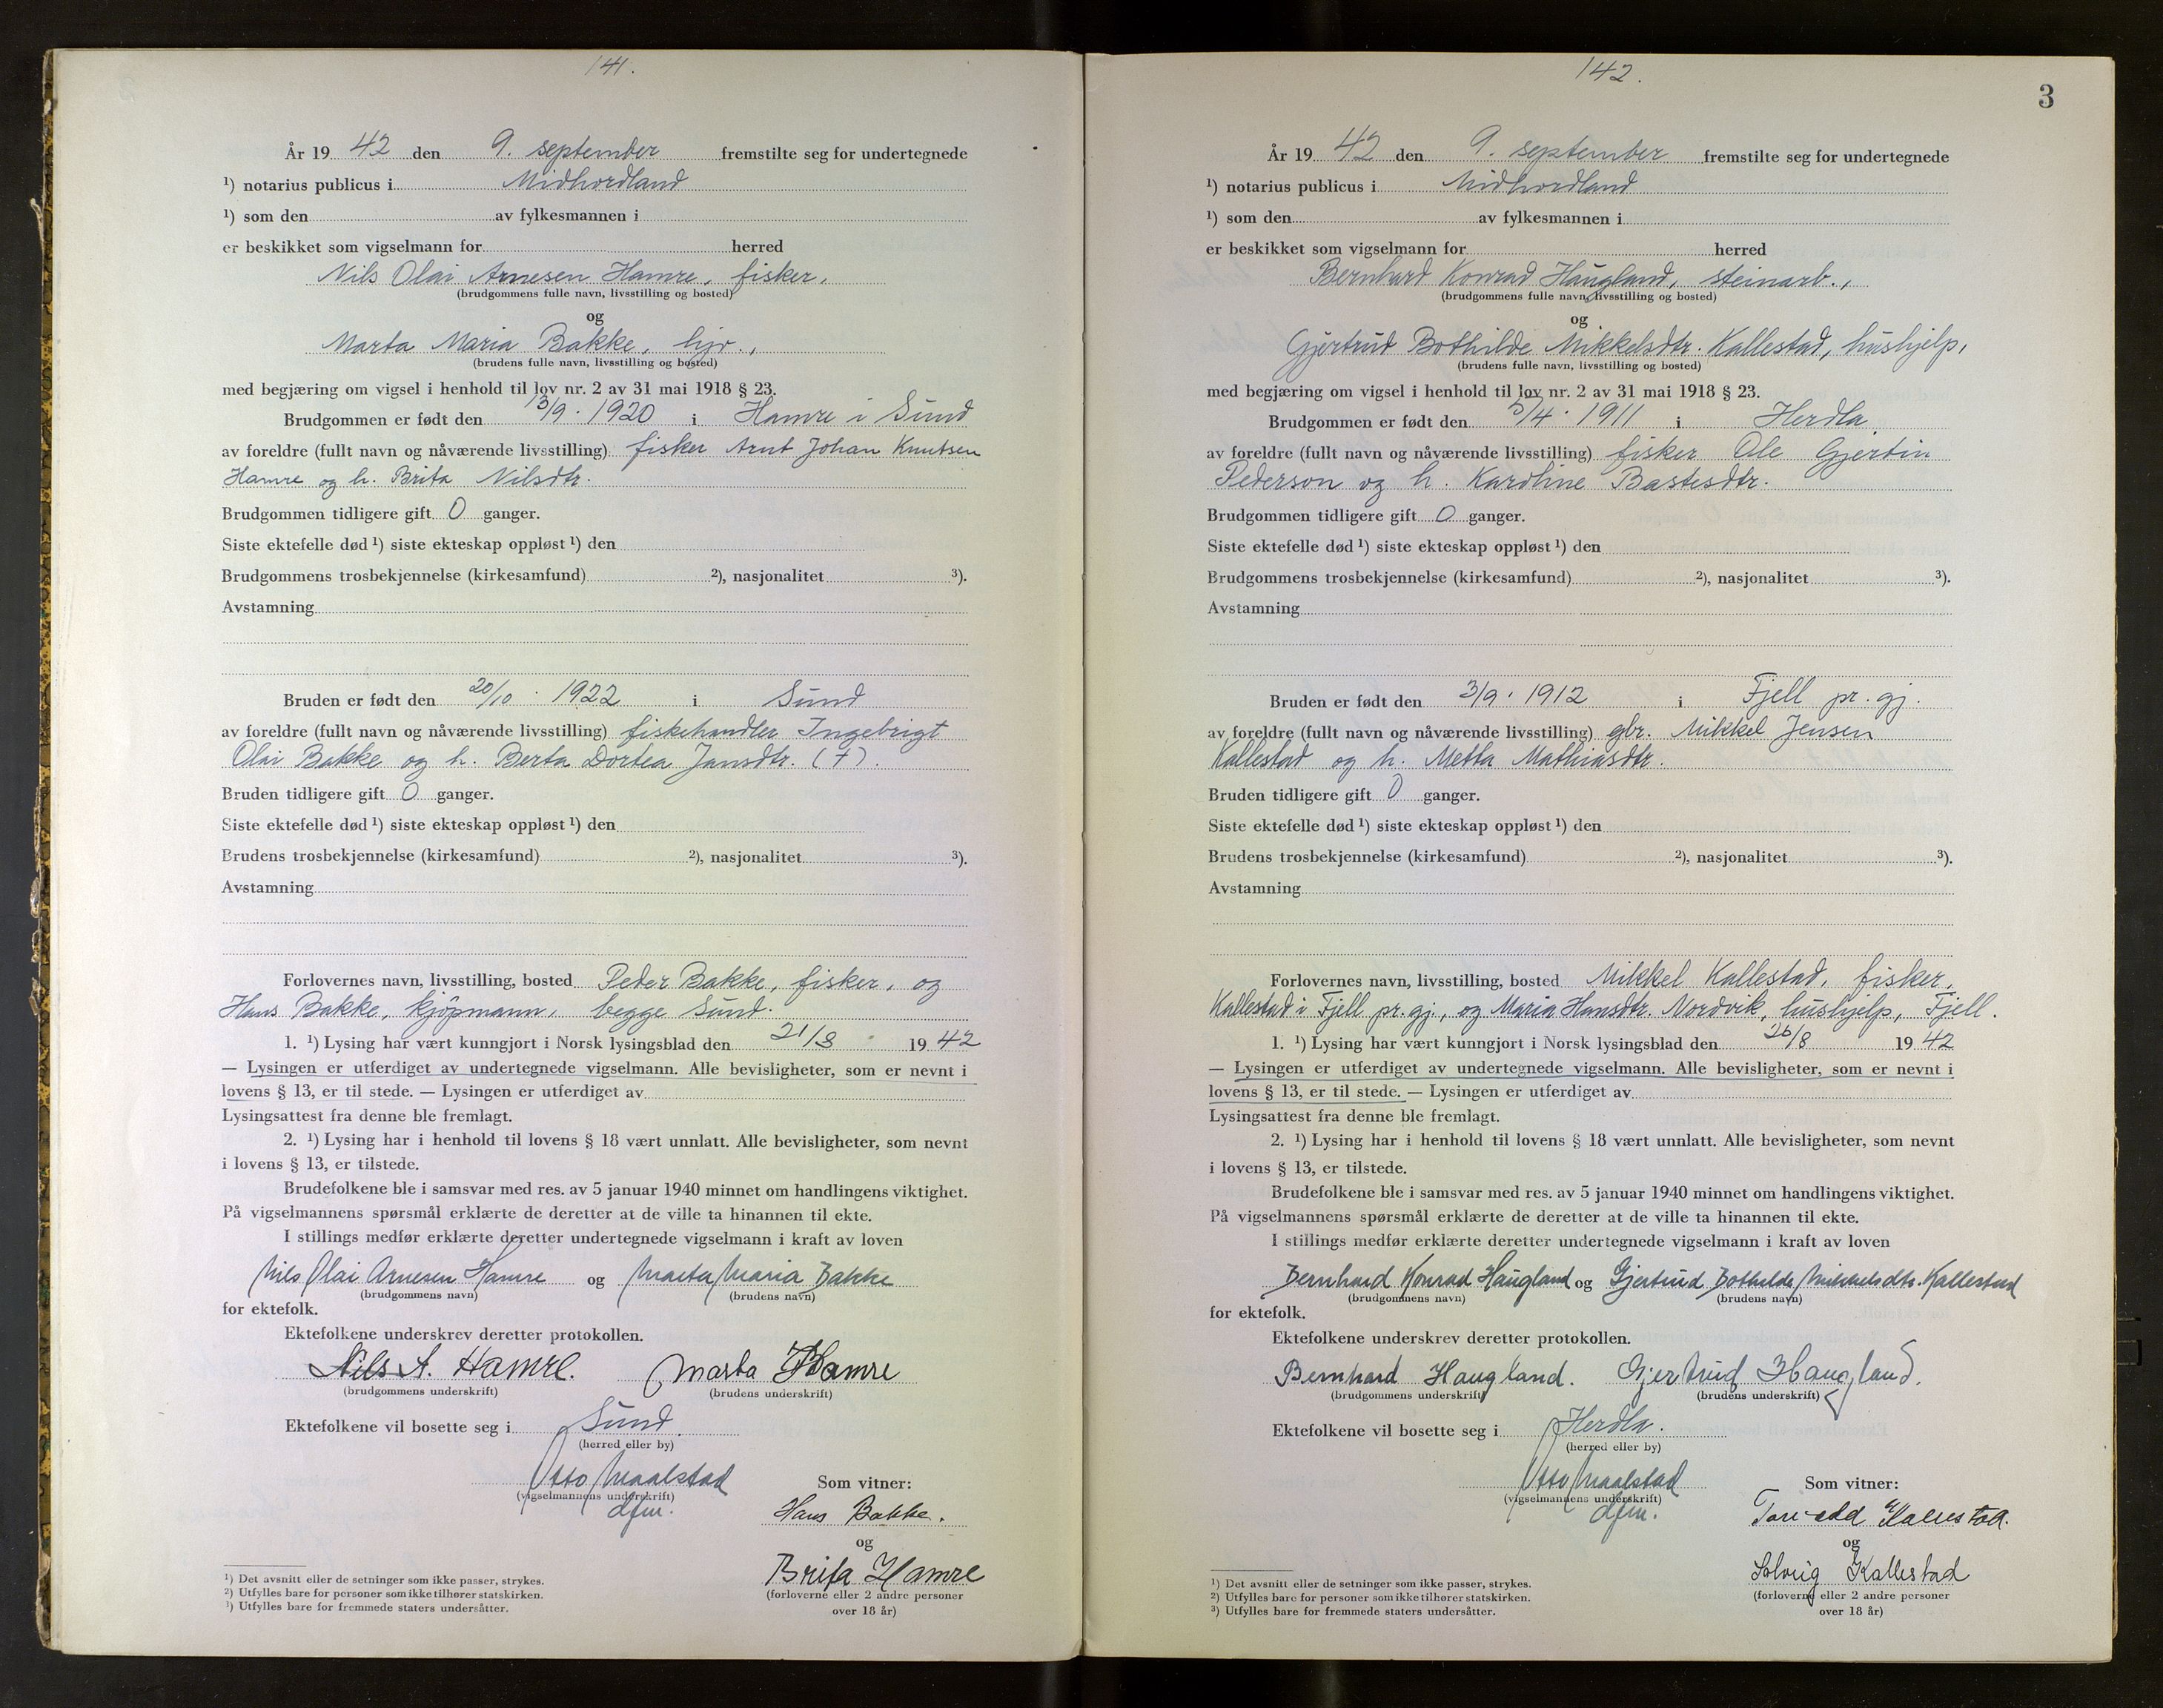 141.
År 19 42 den 9. september fremstilte seg for undertegnede
¹) notarius publicus i Midhordland
¹) som den av fylkesmannen i
er beskikket som vigselmann for herred
Nils Olai Arnesen Hamre, fisker,
(brudgommens fulle navn, livsstilling og bosted)
og
Marta Maria Bakke, hjv.,
(brudens fulle navn, livsstilling og bosted)
med begjæring om vigsel i henhold til lov nr. 2 av 31 mai 1918 § 23.
Brudgommen er født den 13/9 · 1920 i Hamre i Sund
av foreldre (fullt navn og nåværende livsstilling) fisker Arnt Johan Knutsen
Hamre og h. Brita Nilsdtr.
Brudgommen tidligere gift 0 ganger.
Siste ektefelle død ¹) siste ekteskap oppløst ¹) den
Brudgommens trosbekjennelse (kirkesamfund) ²), nasjonalitet ³).
Avstamning
Bruden er født den 20/10 · 1922 i Sund
av foreldre (fullt navn og nåværende livsstilling) fiskehandler Ingebrigt
Olai Bakke og h. Berta Dortea Jansdtr. (†).
Bruden tidligere gift 0 ganger.
Siste ektefelle død ¹) siste ekteskap oppløst ¹) den
Brudens trosbekjennelse (kirkesamfund) ²), nasjonalitet ³).
Avstamning
Forlovernes navn, livsstilling, bosted Peder Bakke, fisker, og
Hans Bakke, kjöpmann, begge Sund.
1. ¹) Lysing har vært kunngjort i Norsk lysingsblad den 21/8 19 42
— Lysingen er utferdiget av undertegnede vigselmann. Alle bevisligheter, som er nevnt i
lovens § 13, er til stede. — Lysingen er utferdiget av
Lysingsattest fra denne ble fremlagt.
2. ¹) Lysing har i henhold til lovens § 18 vært unnlatt. Alle bevisligheter, som nevnt
i lovens § 13, er tilstede.
Brudefolkene ble i samsvar med res. av 5 januar 1940 minnet om handlingens viktighet.
På vigselmannens spørsmål erklærte de deretter at de ville ta hinannen til ekte.
I stillings medfør erklærte deretter undertegnede vigselmann i kraft av loven
Nils Olai Arnesen Hamre og Marta Maria Bakke
(brudgommens navn) (brudens navn)
for ektefolk.
Ektefolkene underskrev deretter protokollen.
Nils A. Hamre. Marta Hamre
(brudgommens underskrift) (brudens underskrift)
Ektefolkene vil bosette seg i Sund.
(herred eller by)
Otto Maalstad
(vigselmannens underskrift)
dfm.
Som vitner:
Hans Bakke.
og
Brita Hamre
(forloverne eller 2 andre personer
over 18 år)
¹) Det avsnitt eller de setninger som ikke passer, strykes.
²) Utfylles bare for personer som ikke tilhører statskirken.
³) Utfylles bare for fremmede staters undersåtter.
142.
3
År 19 42 den 9. september fremstilte seg for undertegnede
¹) notarius publicus i Midhordland
¹) som den av fylkesmannen i
er beskikket som vigselmann for herred
Bernhard Konrad Haugland, steinarb.,
(brudgommens fulle navn, livsstilling og bosted)
og
Gjertrud Bothilde Mikkelsdtr. Kallestad, hushjelp,
(brudens fulle navn, livsstilling og bosted)
med begjæring om vigsel i henhold til lov nr. 2 av 31 mai 1918 § 23.
Brudgommen er født den 5/4 · 1911 i Herdla
av foreldre (fullt navn og nåværende livsstilling) fisker Ole Gjertin
Pederson og h. Karoline Bastesdtr.
Brudgommen tidligere gift 0 ganger.
Siste ektefelle død ¹) siste ekteskap oppløst ¹) den
Brudgommens trosbekjennelse (kirkesamfund) ²), nasjonalitet ³).
Avstamning
Bruden er født den 3/9 · 1912 i Fjell pr. gj.
av foreldre (fullt navn og nåværende livsstilling) gbr. Mikkel Jensen
Kallestad og h. Metta Mathiasdtr.
Bruden tidligere gift 0 ganger.
Siste ektefelle død ¹) siste ekteskap oppløst ¹) den
Brudens trosbekjennelse (kirkesamfund) ²), nasjonalitet ³).
Avstamning
Forlovernes navn, livsstilling, bosted Mikkel Kallestad, fisker,
Kallestad i Fjell pr. gj., og Maria Hansdtr. Nordvik, hushjelp, Fjell.
1. ¹) Lysing har vært kunngjort i Norsk lysingsblad den 26/8 19 42
— Lysingen er utferdiget av undertegnede vigselmann. Alle bevisligheter, som er nevnt i
lovens § 13, er til stede. — Lysingen er utferdiget av
Lysingsattest fra denne ble fremlagt.
2. ¹) Lysing har i henhold til lovens § 18 vært unnlatt. Alle bevisligheter, som nevnt
i lovens § 13, er tilstede.
Brudefolkene ble i samsvar med res. av 5 januar 1940 minnet om handlingens viktighet.
På vigselmannens spørsmål erklærte de deretter at de ville ta hinannen til ekte.
I stillings medfør erklærte deretter undertegnede vigselmann i kraft av loven
Bernhard Konrad Haugland og Gjertrud Bothilde Mikkelsdtr. Kallestad
(brudgommens navn) (brudens navn)
for ektefolk.
Ektefolkene underskrev deretter protokollen.
Bernhard Haugland. Gjertrud Haugland.
(brudgommens underskrift) (brudens underskrift)
Ektefolkene vil bosette seg i Herdla.
(herred eller by)
Otto Maalstad
(vigselmannens underskrift)
dfm.
Som vitner:
Kallestad.
og
Solveig Kallestad
(forloverne eller 2 andre personer
over 18 år)
¹) Det avsnitt eller de setninger som ikke passer, strykes.
²) Utfylles bare for personer som ikke tilhører statskirken.
³) Utfylles bare for fremmede staters undersåtter.